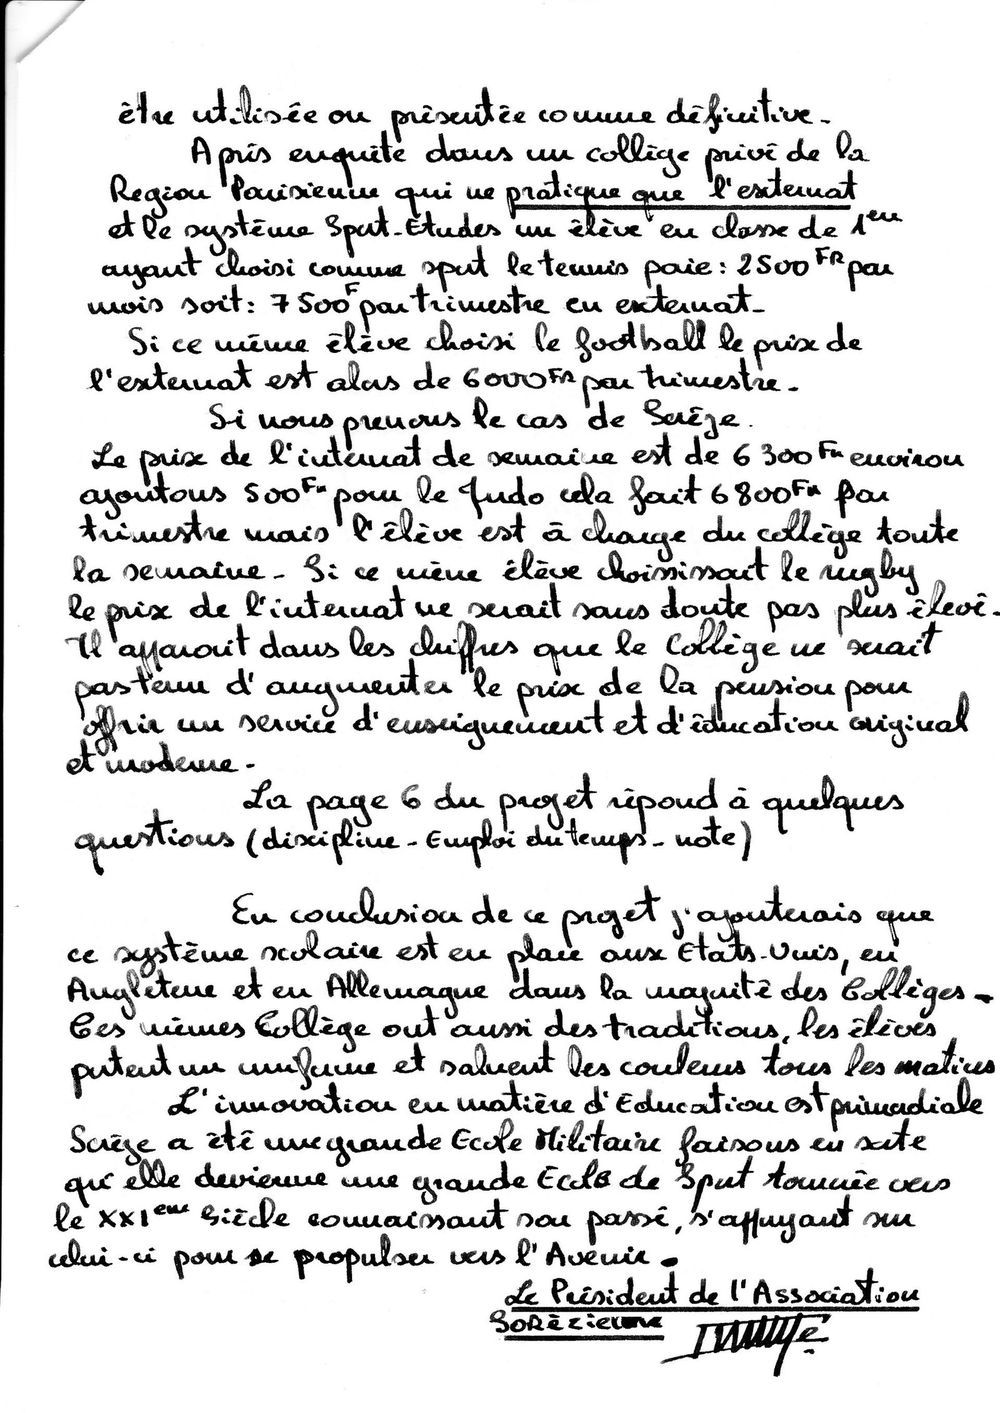 être utilisée ou présentée comme définitive.
Après enquête dans un collège privé de la
Region Parisienne qui ne pratique que l'externat
et le système Sport-Etudes un élève en classe de 1ere
ayant choisi comme sport le tennis paie : 2500 FR par
mois soit : 7500F par trimestre en externat.
Si ce même élève choisi le football le prix de
l'externat est alors de 6000FR par trimestre.
Si nous prenons le cas de Sorèze.
Le prix de l'internat de semaine est de 6300Fr environ
ajoutons 500Fr pour le Judo cela fait 6800Fr par
trimestre mais l'élève est à charge du collège toute
la semaine. Si ce même élève choississait le rugby
le prix de l'internat ne serait sans doute pas plus élevé.
Il apparait dans les chiffres que le Collège ne serait
pas tenu d'augmenter le prix de la pension pour
offrir un service d'enseignement et d'éducation original
et moderne.
La page 6 du projet répond à quelques
questions (discipline - Emploi du temps - note)
En conclusion de ce projet j'ajouterais que
ce système scolaire est en place aux Etats-Unis, en
Angleterre et en Allemagne dans la majorité des Collèges.
Ces mêmes Collège ont aussi des traditions, les élèves
portent un uniforme et saluent les couleurs tous les matins
L'innovation en matière d'Education est primordiale
Sorèze a été une grande Ecole Militaire faisons en sorte
qu'elle devienne une grande Ecole de Sport tournée vers
le XXIeme Siècle connaissant son passé, s'appuyant sur
celui-ci pour se propulser vers l'Avenir.
Le Président de l'Association
Sorèzienne